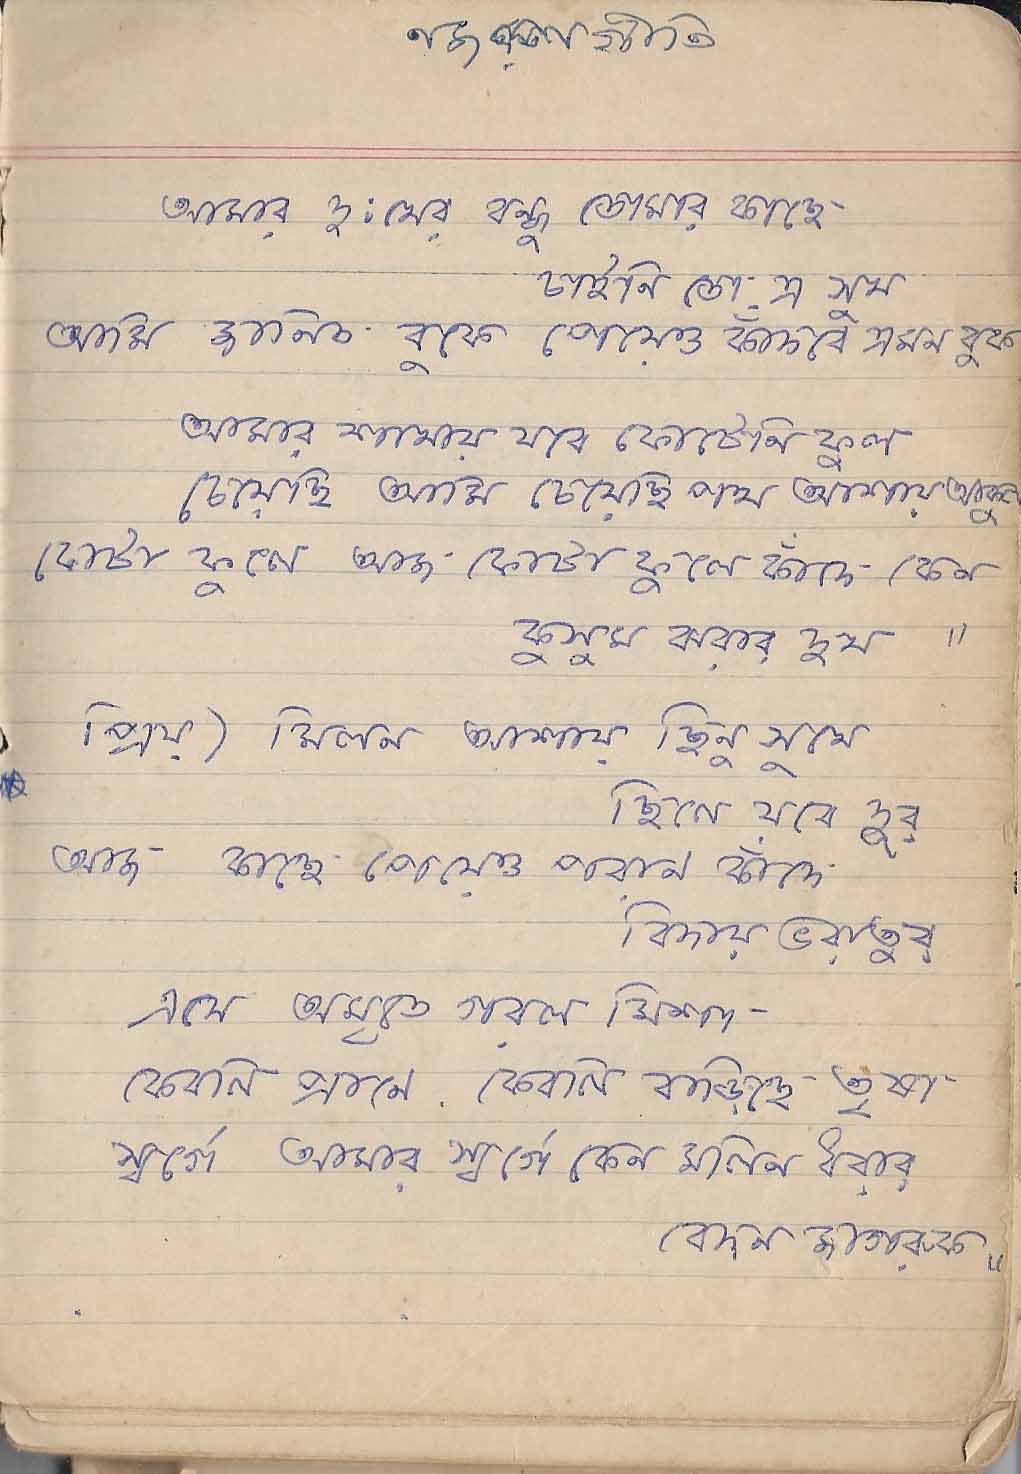 নজরুল গীতি
আমার দুঃখের বন্ধু তোমার কাছে
চাইনি তো এ সুখ
আমি জানিত বুকে পেয়েও কাঁদবে এমন বুক
আমার শাখায় যবে ফোটেনি ফুল
চেয়েছি আমি চেয়েছি পথ আশায় আকুল
ফোটা ফুলে আজ ফোটা ফুলে কাঁদে কেন
কুসুম ঝরার দুখ ॥
প্রিয়) মিলন আশায় ছিনু সুখে
ছিলে যবে দুর
আজ কাছে পেয়েও পরান কাঁদে
বিদায় ভয়াতুর
এযে অমৃতে গরল মিশা
কেবলি প্রানে কেবলি বাড়িছে তৃষা
স্বর্গে আমার স্বর্গে কেন মলিন ধরার
বেদন জাগরুক ॥